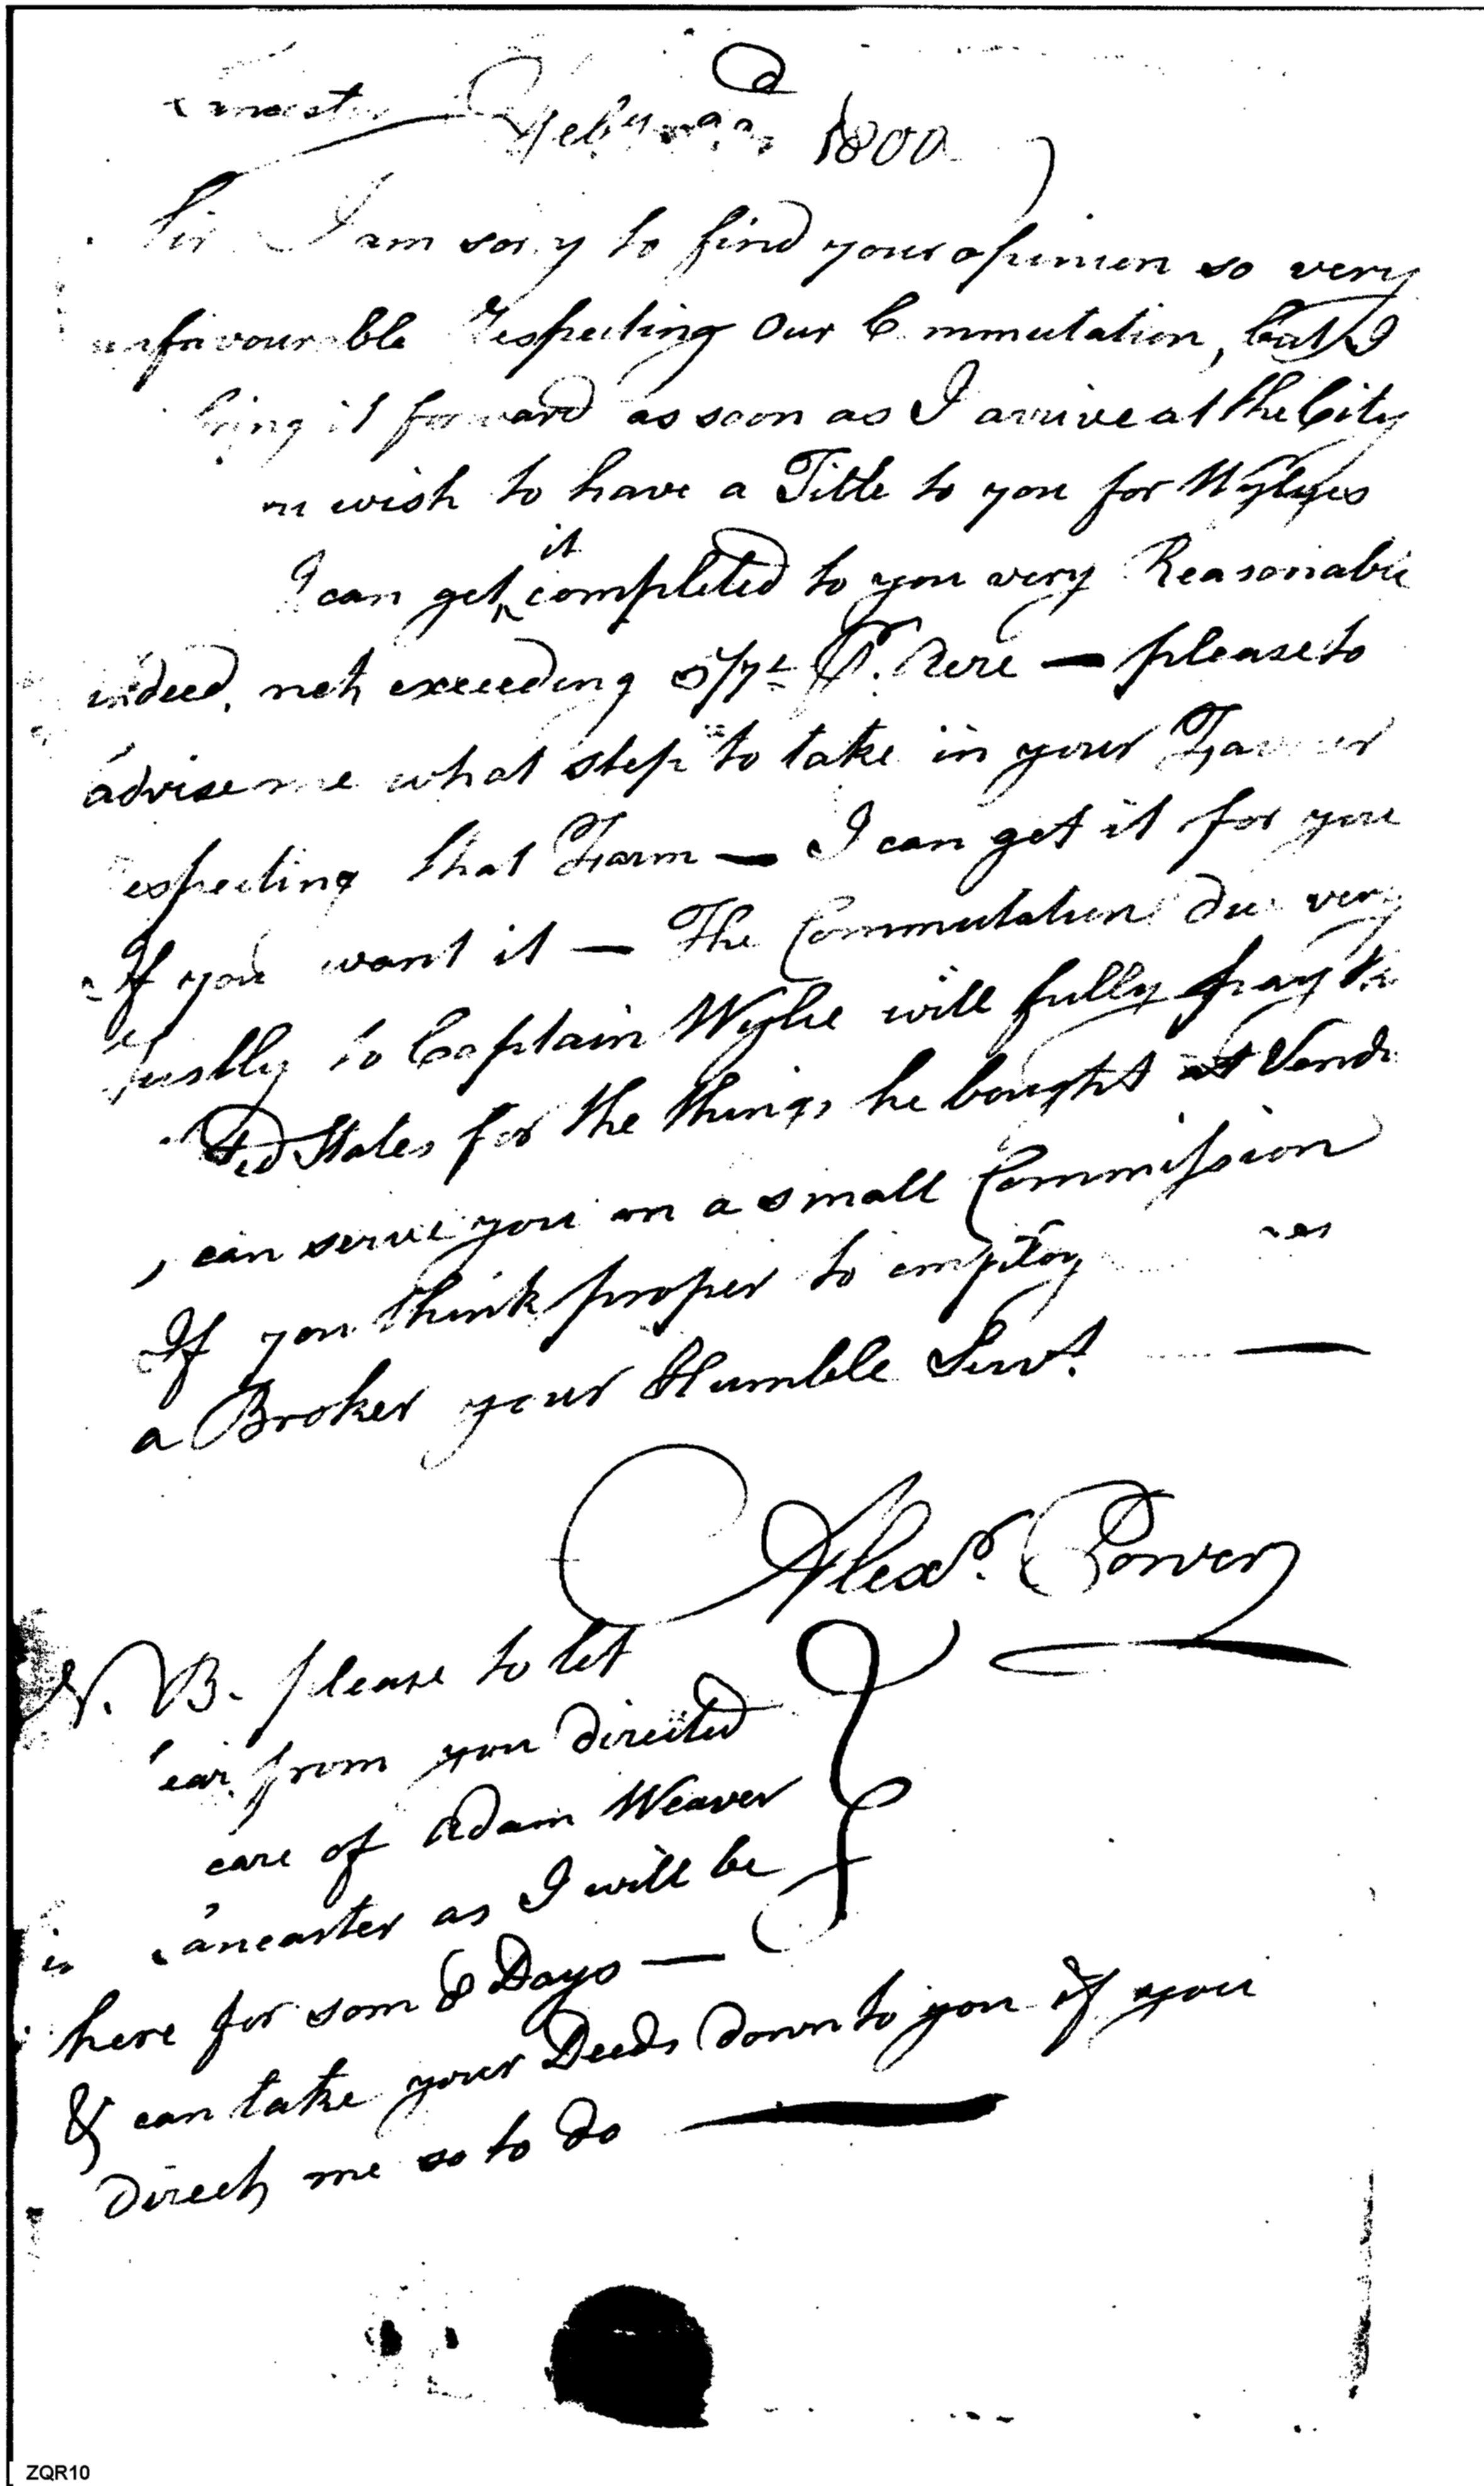 Feby 1800
Sir I am sory to find your opinion so very
unfavourable Respecting Our Commutation, but I
bring it forward as soon as I arrive at the City
wish to have a Title to you for Wylyes
I can get it completed to you very Reasonable
indeed, not exceeding Pr. Acre — please to
advise me what step to take in your Favour
respecting that Farm — I can get it for you
If you want it — The Commutation due very
Justly to Captain Wylie will fully pay the
States for the things he bought at
I can serve you on a small Commission
If you think proper to employ
a Broker your Humble Servt. —
Alexr. Power
N. B. please to let
hear from you directed
care of Adam Weaver
in Lancaster as I will be
here for som 8 Days —
& can take your Deeds down to you if you
Direct me so to do —
ZQR10